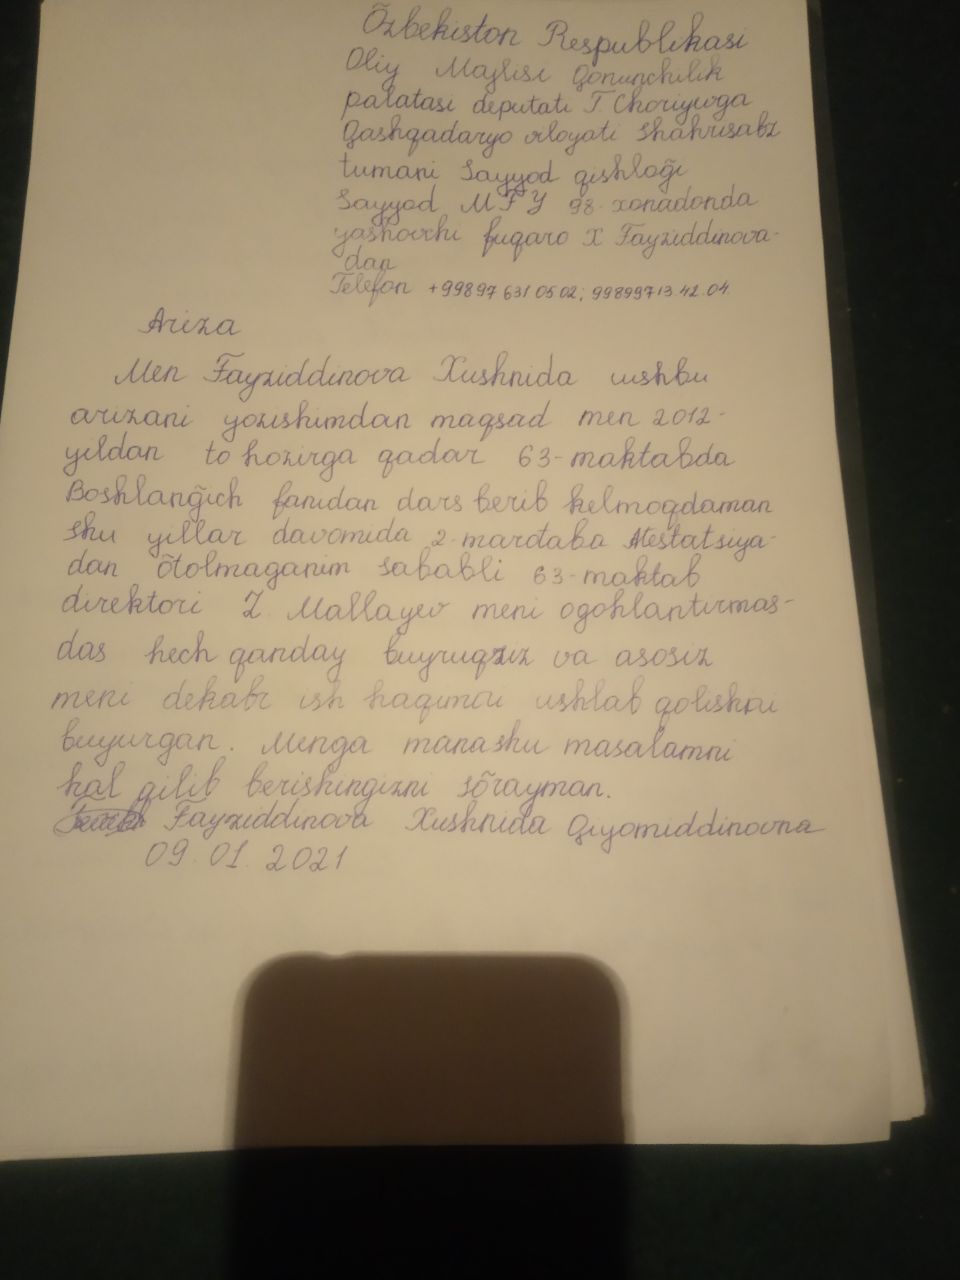 Õzbekiston Respublikasi
Oliy Majlisi Qonunchilik
palatasi deputati T Choriyevga
Qashqadaryo viloyati Shahrisabz
tumani Sayyod qishlog̃i
Sayyod MFY 98-xonadonda
yashovchi fuqaro X Fayziddinova-
dan
Telefon +99897 631 05 02; 99899713.42.04.
Ariza
Men Fayziddinova Xushnida ushbu
arizani yozishimdan maqsad men 2012-
yildan to hozirga qadar 63-maktabda
Boshlang̃ich fanidan dars berib kelmoqdaman
shu yillar davomida 2-mardaba Atestatsiya-
dan õtolmaganim sababli 63-maktab
direktori Z. Mallayev meni ogohlantirmas-
das hech qanday buyruqsiz va asosiz
meni dekabr ish haqimni ushlab qolishni
buyurgan. Menga manashu masalamni
hal qilib berishingizni sõrayman.
Fayziddinova Xushnida Qiyomiddinovna
09.01.2021